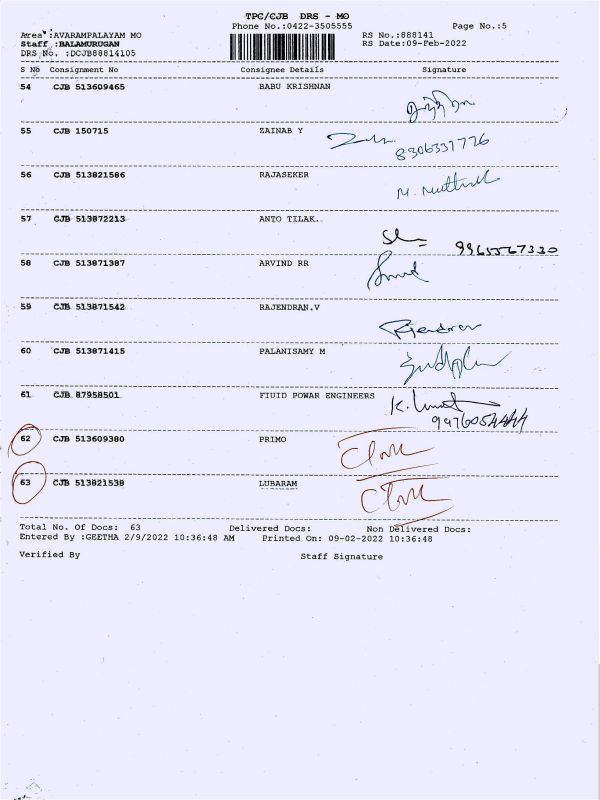 TPC/CJB DRS - MO
Phone No.:0422-3505555 Page No.:5
Area :AVARAMPALAYAM MO RS No.:888141
Staff :BALAMURUGAN RS Date:09-Feb-2022
DRS No. :DCJB88814105
S No Consignment No Consignee Details Signature
54 CJB 513609465 BABU KRISHNAN
55 CJB 150715 ZAINAB Y
8306337776
56 CJB 513821586 RAJASEKER
57 CJB 513872213 ANTO TILAK.
9965567330
58 CJB 513871387 ARVIND RR
59 CJB 513871542 RAJENDRAN.V
Rajendran
60 CJB 513871415 PALANISAMY M
61 CJB 87958501 FIUID POWAR ENGINEERS
62 CJB 513609380 PRIMO
63 CJB 513821538 LUBARAM
Total No. Of Docs: 63 Delivered Docs: Non Delivered Docs:
Entered By :GEETHA 2/9/2022 10:36:48 AM Printed On: 09-02-2022 10:36:48
Verified By Staff Signature